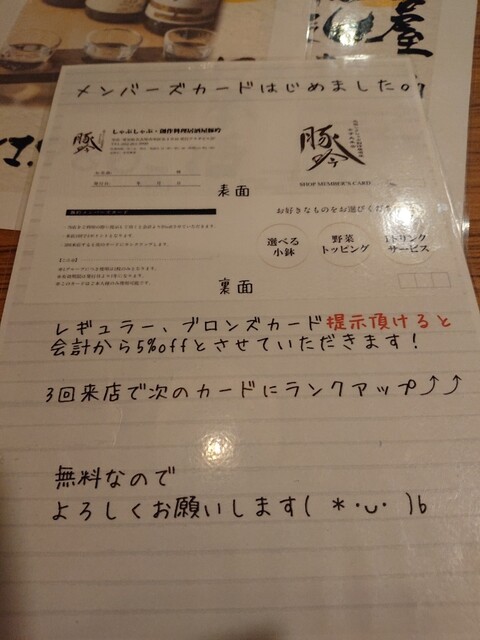 屋
メンバーズカードはじめました♪
豚吟
しゃぶしゃぶ・創作料理居酒屋豚吟
豚吟
SHOP MEMBER'S CARD
表面
お好きなものをお選びくだ
選べる
小鉢
野菜
トッピング
1ドリンク
サービス
裏面
レギュラー、ブロンズカード提示頂けると
会計から5%offとさせていただきます！
3回来店で次のカードにランクアップ⤴⤴
無料なので
よろしくお願いします( *・ᴗ・ )b